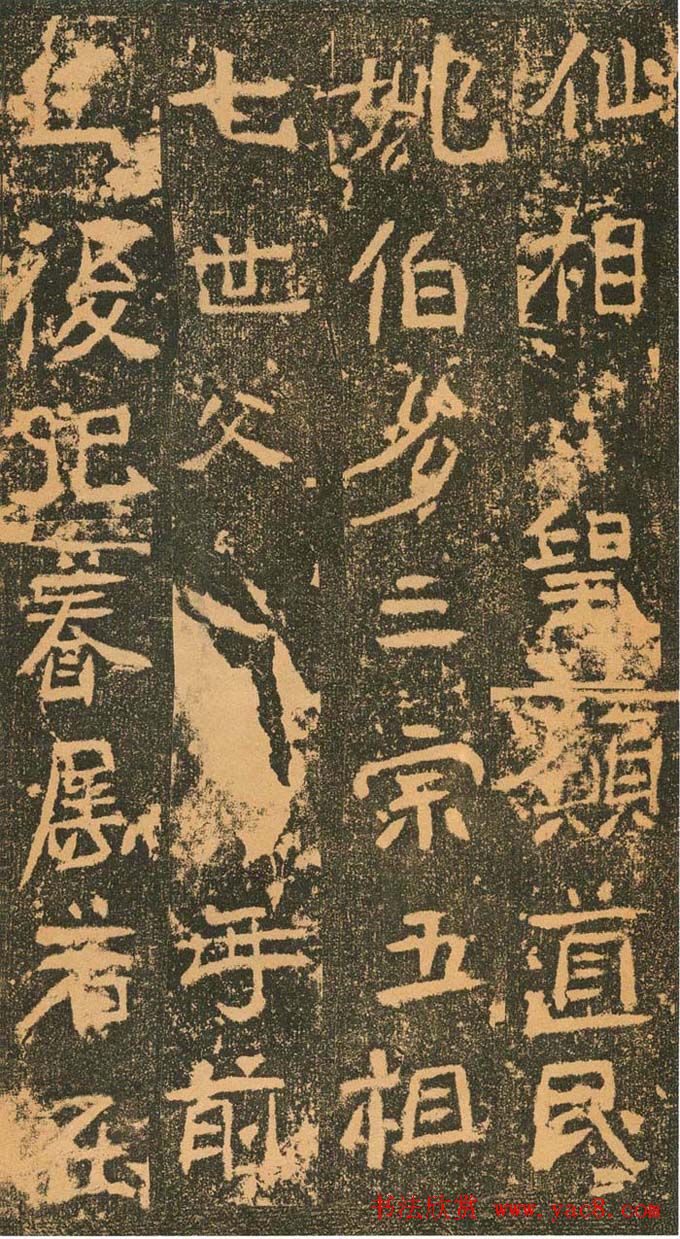 仙相願道民
姚伯多三宗五祖
七世父母前
後死眷屬若在
书法欣赏 www.yac8.com